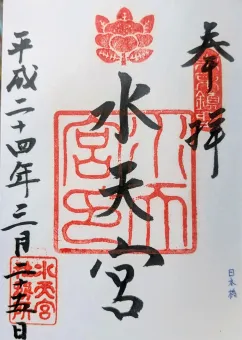 奉拝
水天宮
平成二十四年三月二十五日
日本橋
水天宮